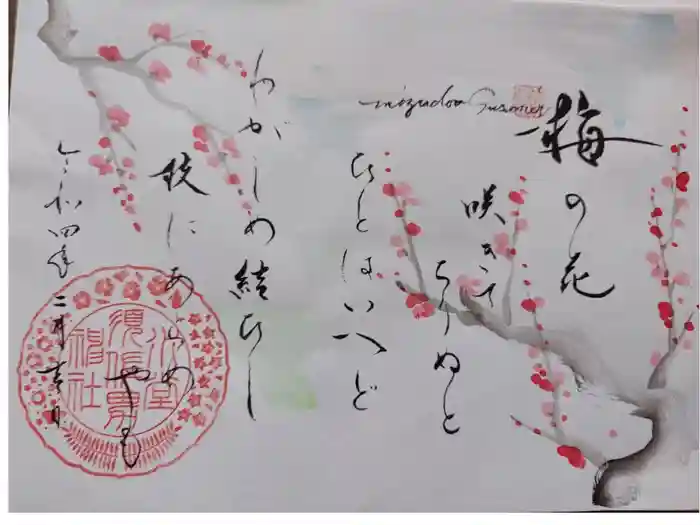 mizudou Susanoo
梅の花
咲きて
ちりぬと
ひとはいへど
わがしめ結ひし
枝にあらめ
やも
令和四年二月吉日
水堂
須佐男
神社